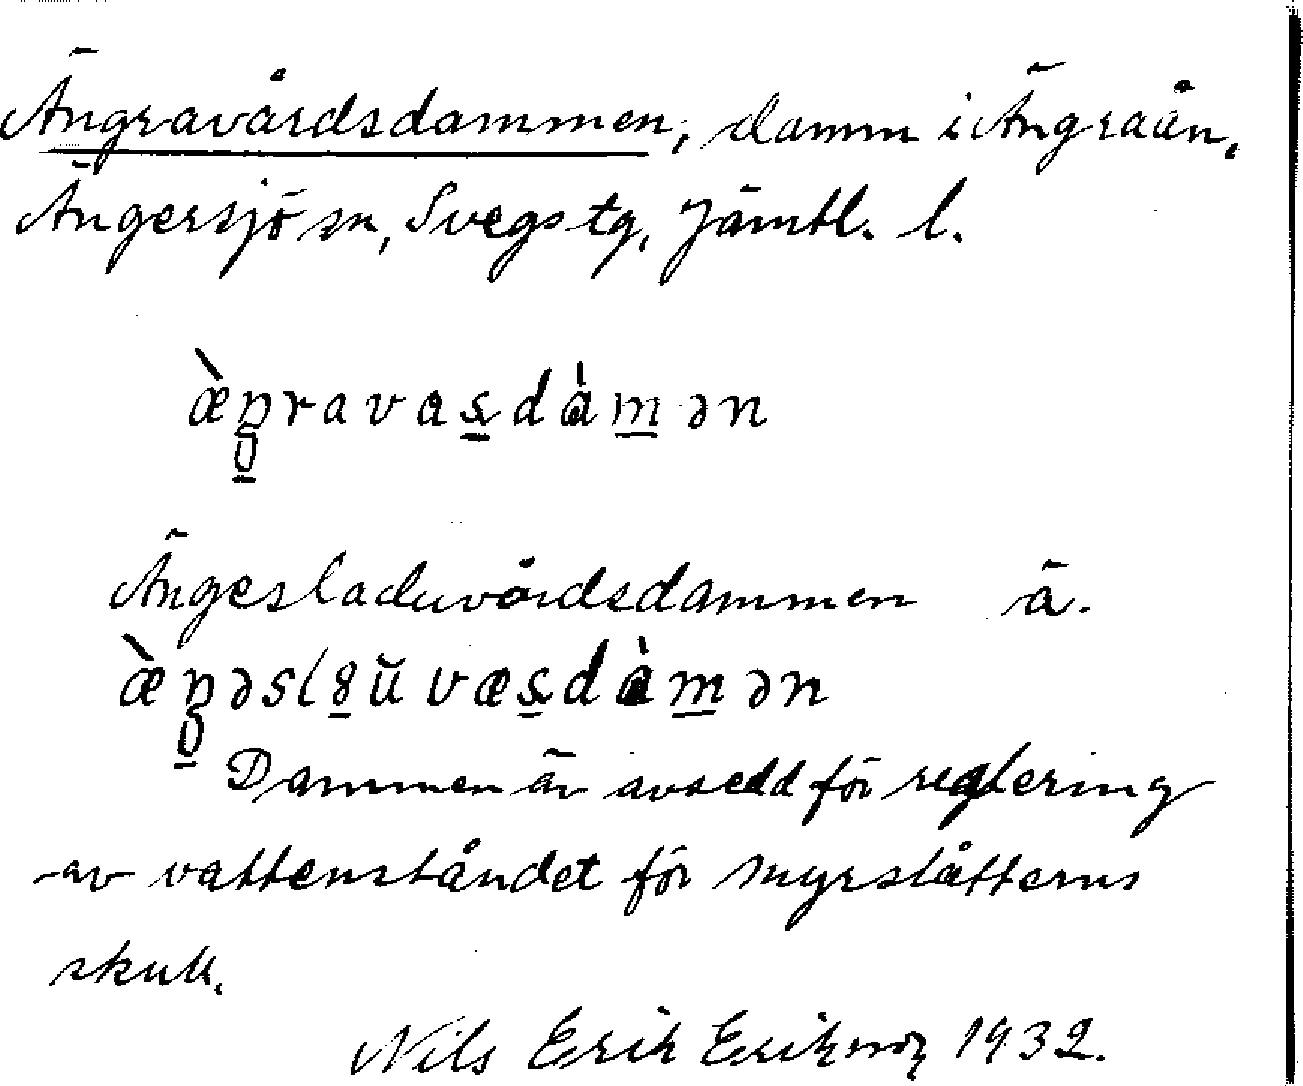 Ängravårdsdammen, damm i Ängraån,
Ängersjö sn, Svegs tg, Jämtl. l.
æ̀ŋravas̱dàm̱ən
Ängesladuvårdsdammen ä.
Dammen är avsedd för reglering
av vattenståndet för myrslåtterns
skull.
Nils Erik Eriksson 1932.